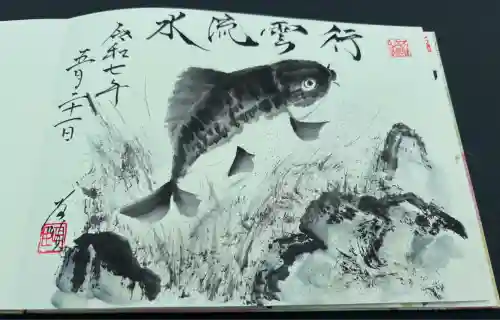 水流雲行
令和七年
五月二十一日